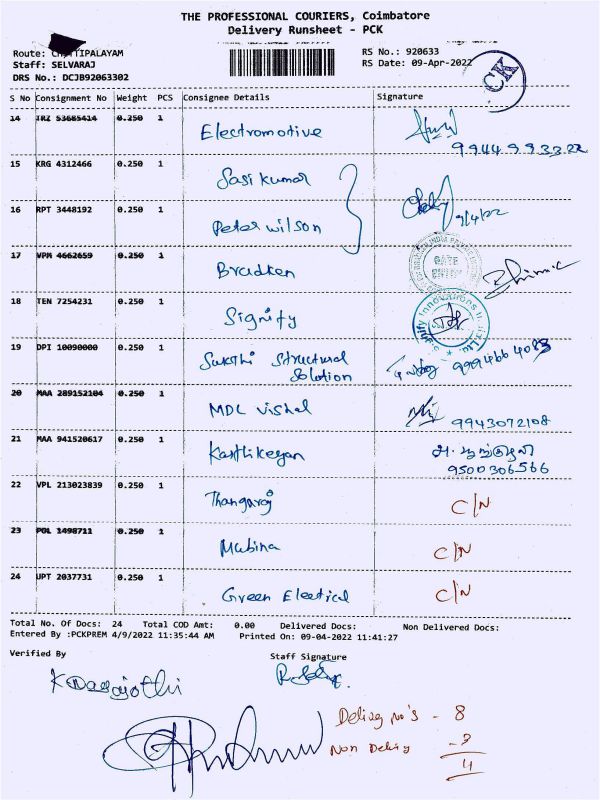 THE PROFESSIONAL COURIERS, Coimbatore
Delivery Runsheet - PCK
Route: TIPALAYAM
Staff: SELVARAJ
DRS No.: DCJB92063302
RS No.: 920633
RS Date: 09-Apr-2022
CK
S No Consignment No Weight PCS Consignee Details Signature
14 TRZ 53685414 0.250 1 Electromotive
9944993322
15 KRG 4312466 0.250 1 Sasi kumar
16 RPT 3448192 0.250 1 Peter wilson 9/4/22
17 VPM 4662659 0.250 1 Bradken
GATE
ENTRY
18 TEN 7254231 0.250 1 Signity
19 DPI 10090000 0.250 1 Sakthi Structural
Solution
20 MAA 289152104 0.250 1 MDL vishal 9943072108
21 MAA 941520617 0.250 1 Karthikeyan
9500306566
22 VPL 213023839 0.250 1 Thangaraj C/N
23 POL 1498711 0.250 1 Mubina C/N
24 UPT 2037731 0.250 1 Green Electical C/N
Total No. Of Docs: 24 Total COD Amt: 0.00 Delivered Docs: Non Delivered Docs:
Entered By :PCKPREM 4/9/2022 11:35:44 AM Printed On: 09-04-2022 11:41:27
Verified By
Staff Signature
Delivery No's - 8
Non Delivy
4